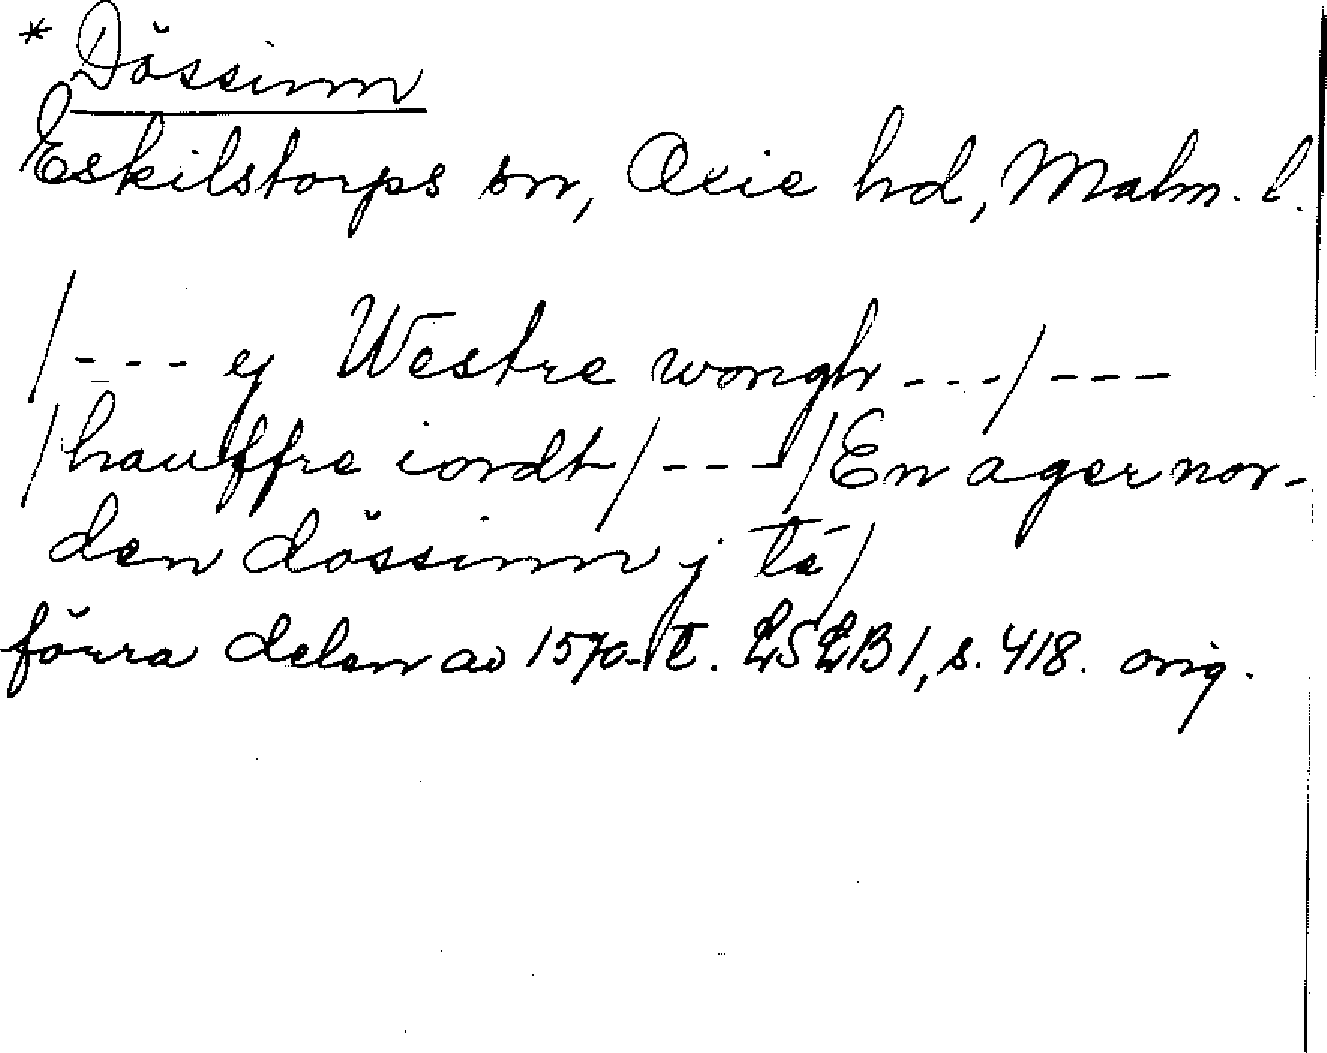 * Dössinn
Eskilstorps sn, Oxie hd, Malm. l.
/--- ej Westre wongh ---/ ---
/hauffre iordt/ --- /En ager nor-
den dössinn j tá/
förra delen av 1570-t. LSLB 1, s. 418. orig.